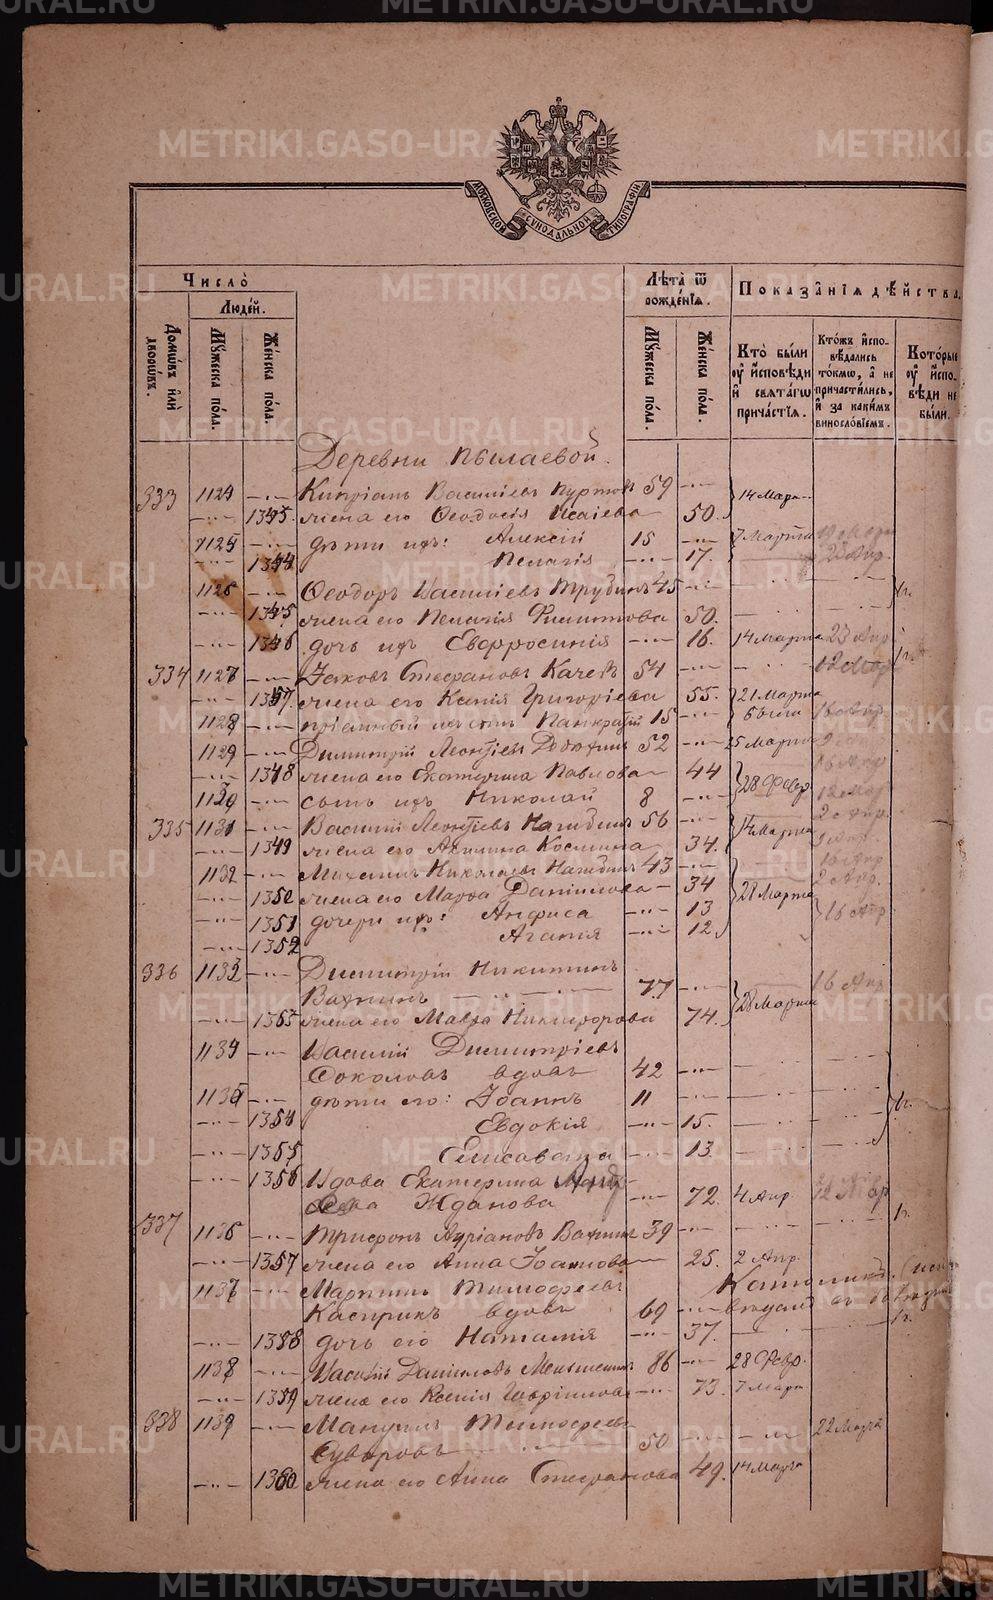 METRIKI.GASO-URAL.RU
МОСКОВСКОЙ СѴНОДАЛЬНОЙ ТИПОГРАФІИ
Число̀
Людє́й.
Домѡ́въ и҆лѝ дворѡ́въ.
Мꙋ́жеска по́ла.
Же́нска по́ла.
Лѣ́та ѿ рожде́нїѧ.
Мꙋ́жеска по́ла.
Же́нска по́ла.
Показа̑нїѧ дѣ́йства.
Кто̀ бы́ли ᲂу҆ и҆сповѣ́ди и҆ свѧта́гѡ прича́стїѧ.
Кто́жъ и҆спо­вѣ́дались то́кмѡ, а҆ не причасти́лись, и҆ за каки́мъ виносло́вїемъ.
Кото́рые ᲂу҆ и҆спо­вѣ́ди не бы́ли.
Деревни Пылаевой.
333 1124 Кипріанъ Василіевъ 59 14 Мар
1343. жена его Ѳеодосія Исаіева 50.
1125 дѣти ихъ: Алексій 15 7 Марта
1344 Пелагія 17.
1126 Ѳеодоръ Василіевъ Трубинъ 45
1345 жена его Пелагія Филиппова 50.
1346 дочь ихъ Евфросинія 16. 14 Марта 23 Апр
334 1127 Іаковъ Стефановъ 54 12 Мар
1347. жена его Ксенія Григоріева 55. 21 Марта
1128 пріемный ихъ сынъ Панкратій 15
1129 Димитрій Леонтіевъ 52 25 Марта
1348 жена его Екатерина Павлова 44 28 Февр
1130 сынъ ихъ Николай 8
335 1131 Василій Леонтіевъ 56 14 Марта
1349 жена его Акилина Космина 34.
1132 Михаилъ Николаевъ 43
1350 жена его Марѳа Даніилова 34 28 Марта
1351 дочери ихъ: Анфиса 13 16 Апр
1352 Агапія 12.
336 1133 Димитрій Никитинъ
Вахнинъ 77 16 Апр
1353 жена его Мавра Никифорова 74. 28 Марта
1134 Василій Димитріевъ
Соколовъ вдовъ 42
1135 дѣти его: Іоаннъ 11
1354 Евдокія 15.
1355 Елисавета 13.
1356 Вдова Екатерина
Жданова 72. 4 Апр
337 1136 Трифонъ Адріановъ Вахнинъ 39
1357 жена его Анна Іоаннова 25. 2 Апр.
1137 Мартинъ Тимофеевъ
Касприкъ вдовъ 69
1358 дочь его Наталія 37.
1138 Василій Даніиловъ Меньшенинъ 86 28 Февр.
1359 жена его Ксенія Гавріилова 73. 7 Март
338 1139 Мануилъ Тимофеевъ
Суворовъ 50 22 Марта
1360 жена его Анна Стефанова 49. 14 Марта